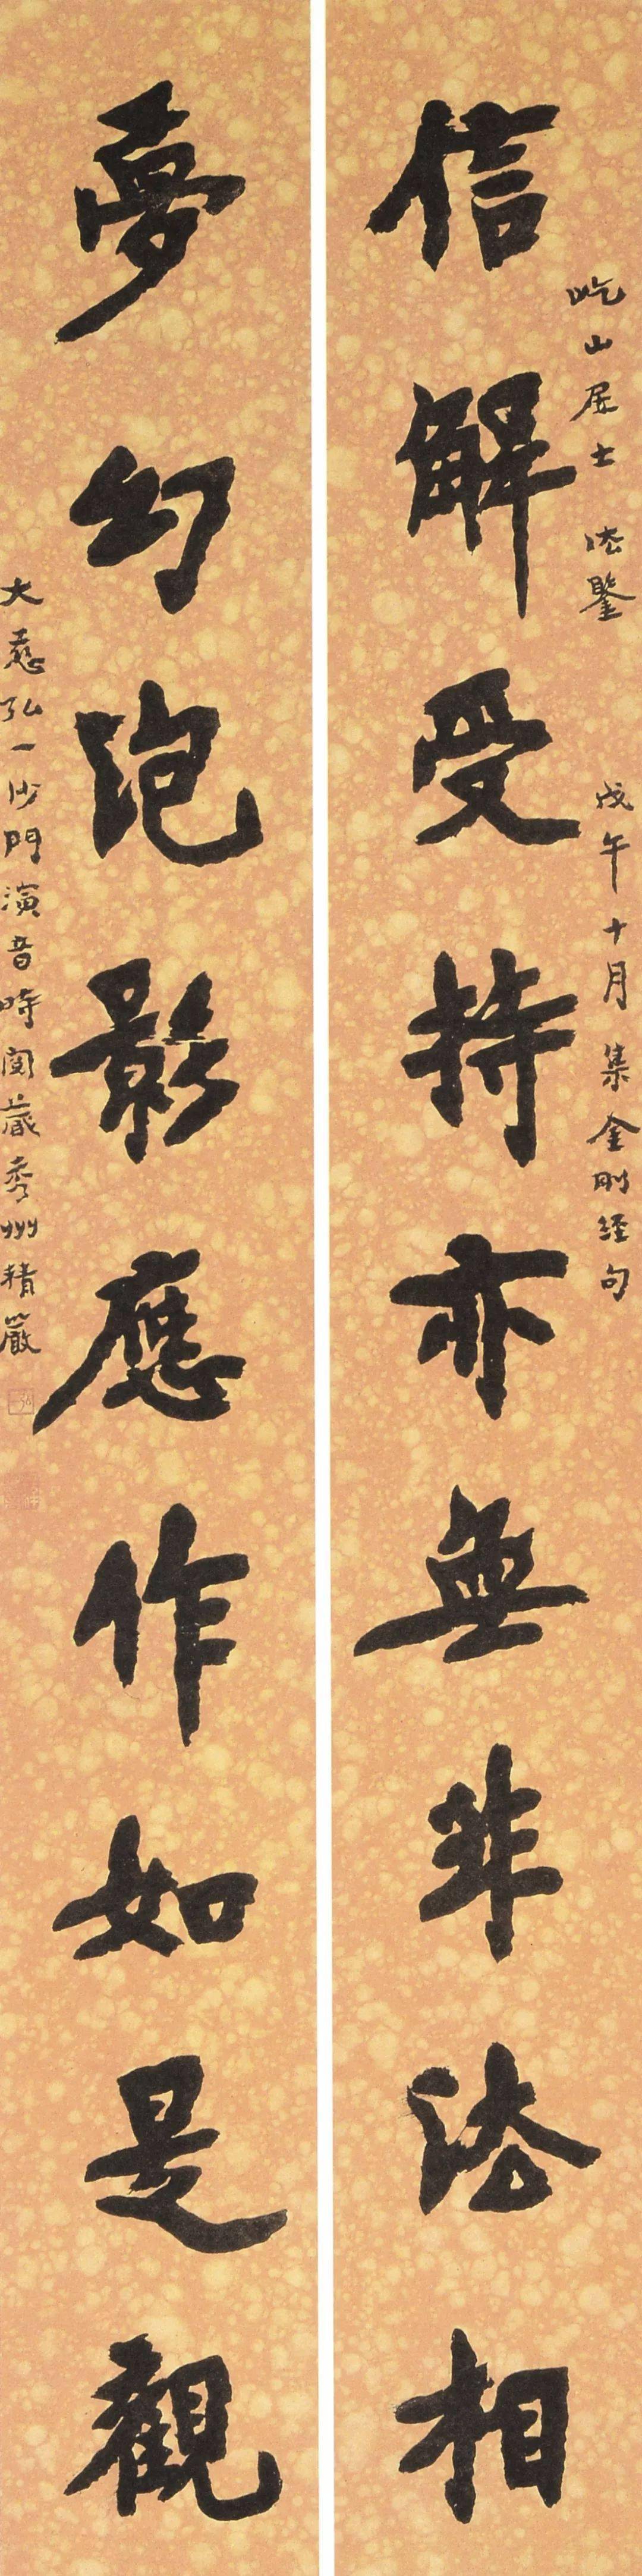 信解受持亦無非法相
屹山居士 法鑒 戊午十月集金剛經句
夢幻泡影應作如是觀
大慈弘一沙門演音時閱藏秀州精嚴